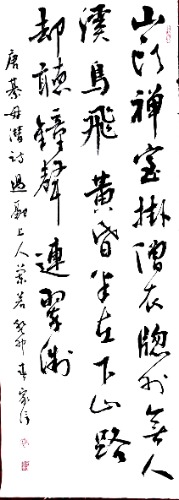 山頂禅室掛僧衣窓外無人
溪鳥飛黄昏半在下山路
却聽鐘聲連翠微
唐綦毋潜詩過融上人蘭若癸卯李家